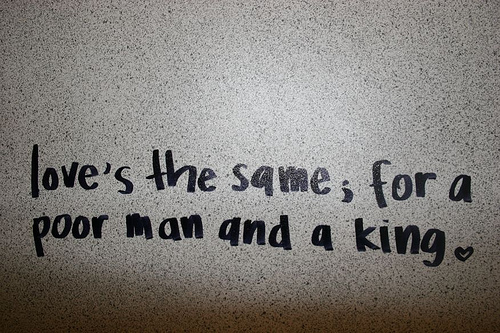 love's the same; for a
poor man and a king.♡